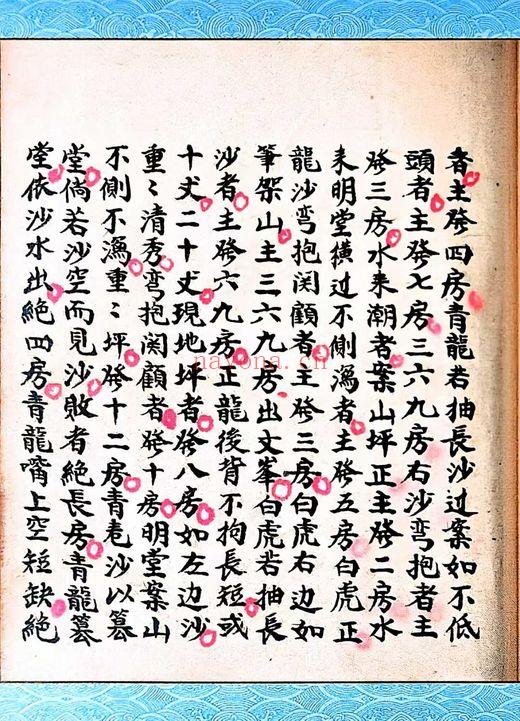 者主發四房青龍若抽長沙过案如不低
頭者主發七房三六九房右沙弯抱者主
發三房水来潮者案山坪正主發二房水
来明堂横过不側瀉者主發五房白虎正
龍沙弯抱関顧者主發三房白虎右邊如
筆架山主三六九房出文峯白虎若抽長
沙者主發六九房正龍後背不拘長短或
十丈二十丈現地坪者發八房如左边沙
重〻清秀弯抱関顧者發十房明堂案山
不側不瀉重〻坪發十二房青竜沙以篡
堂倘若沙空而見沙敗者絕長房青龍篡
堂依沙水出絕四房青龍嘴上空短缺絕
nayona.cn